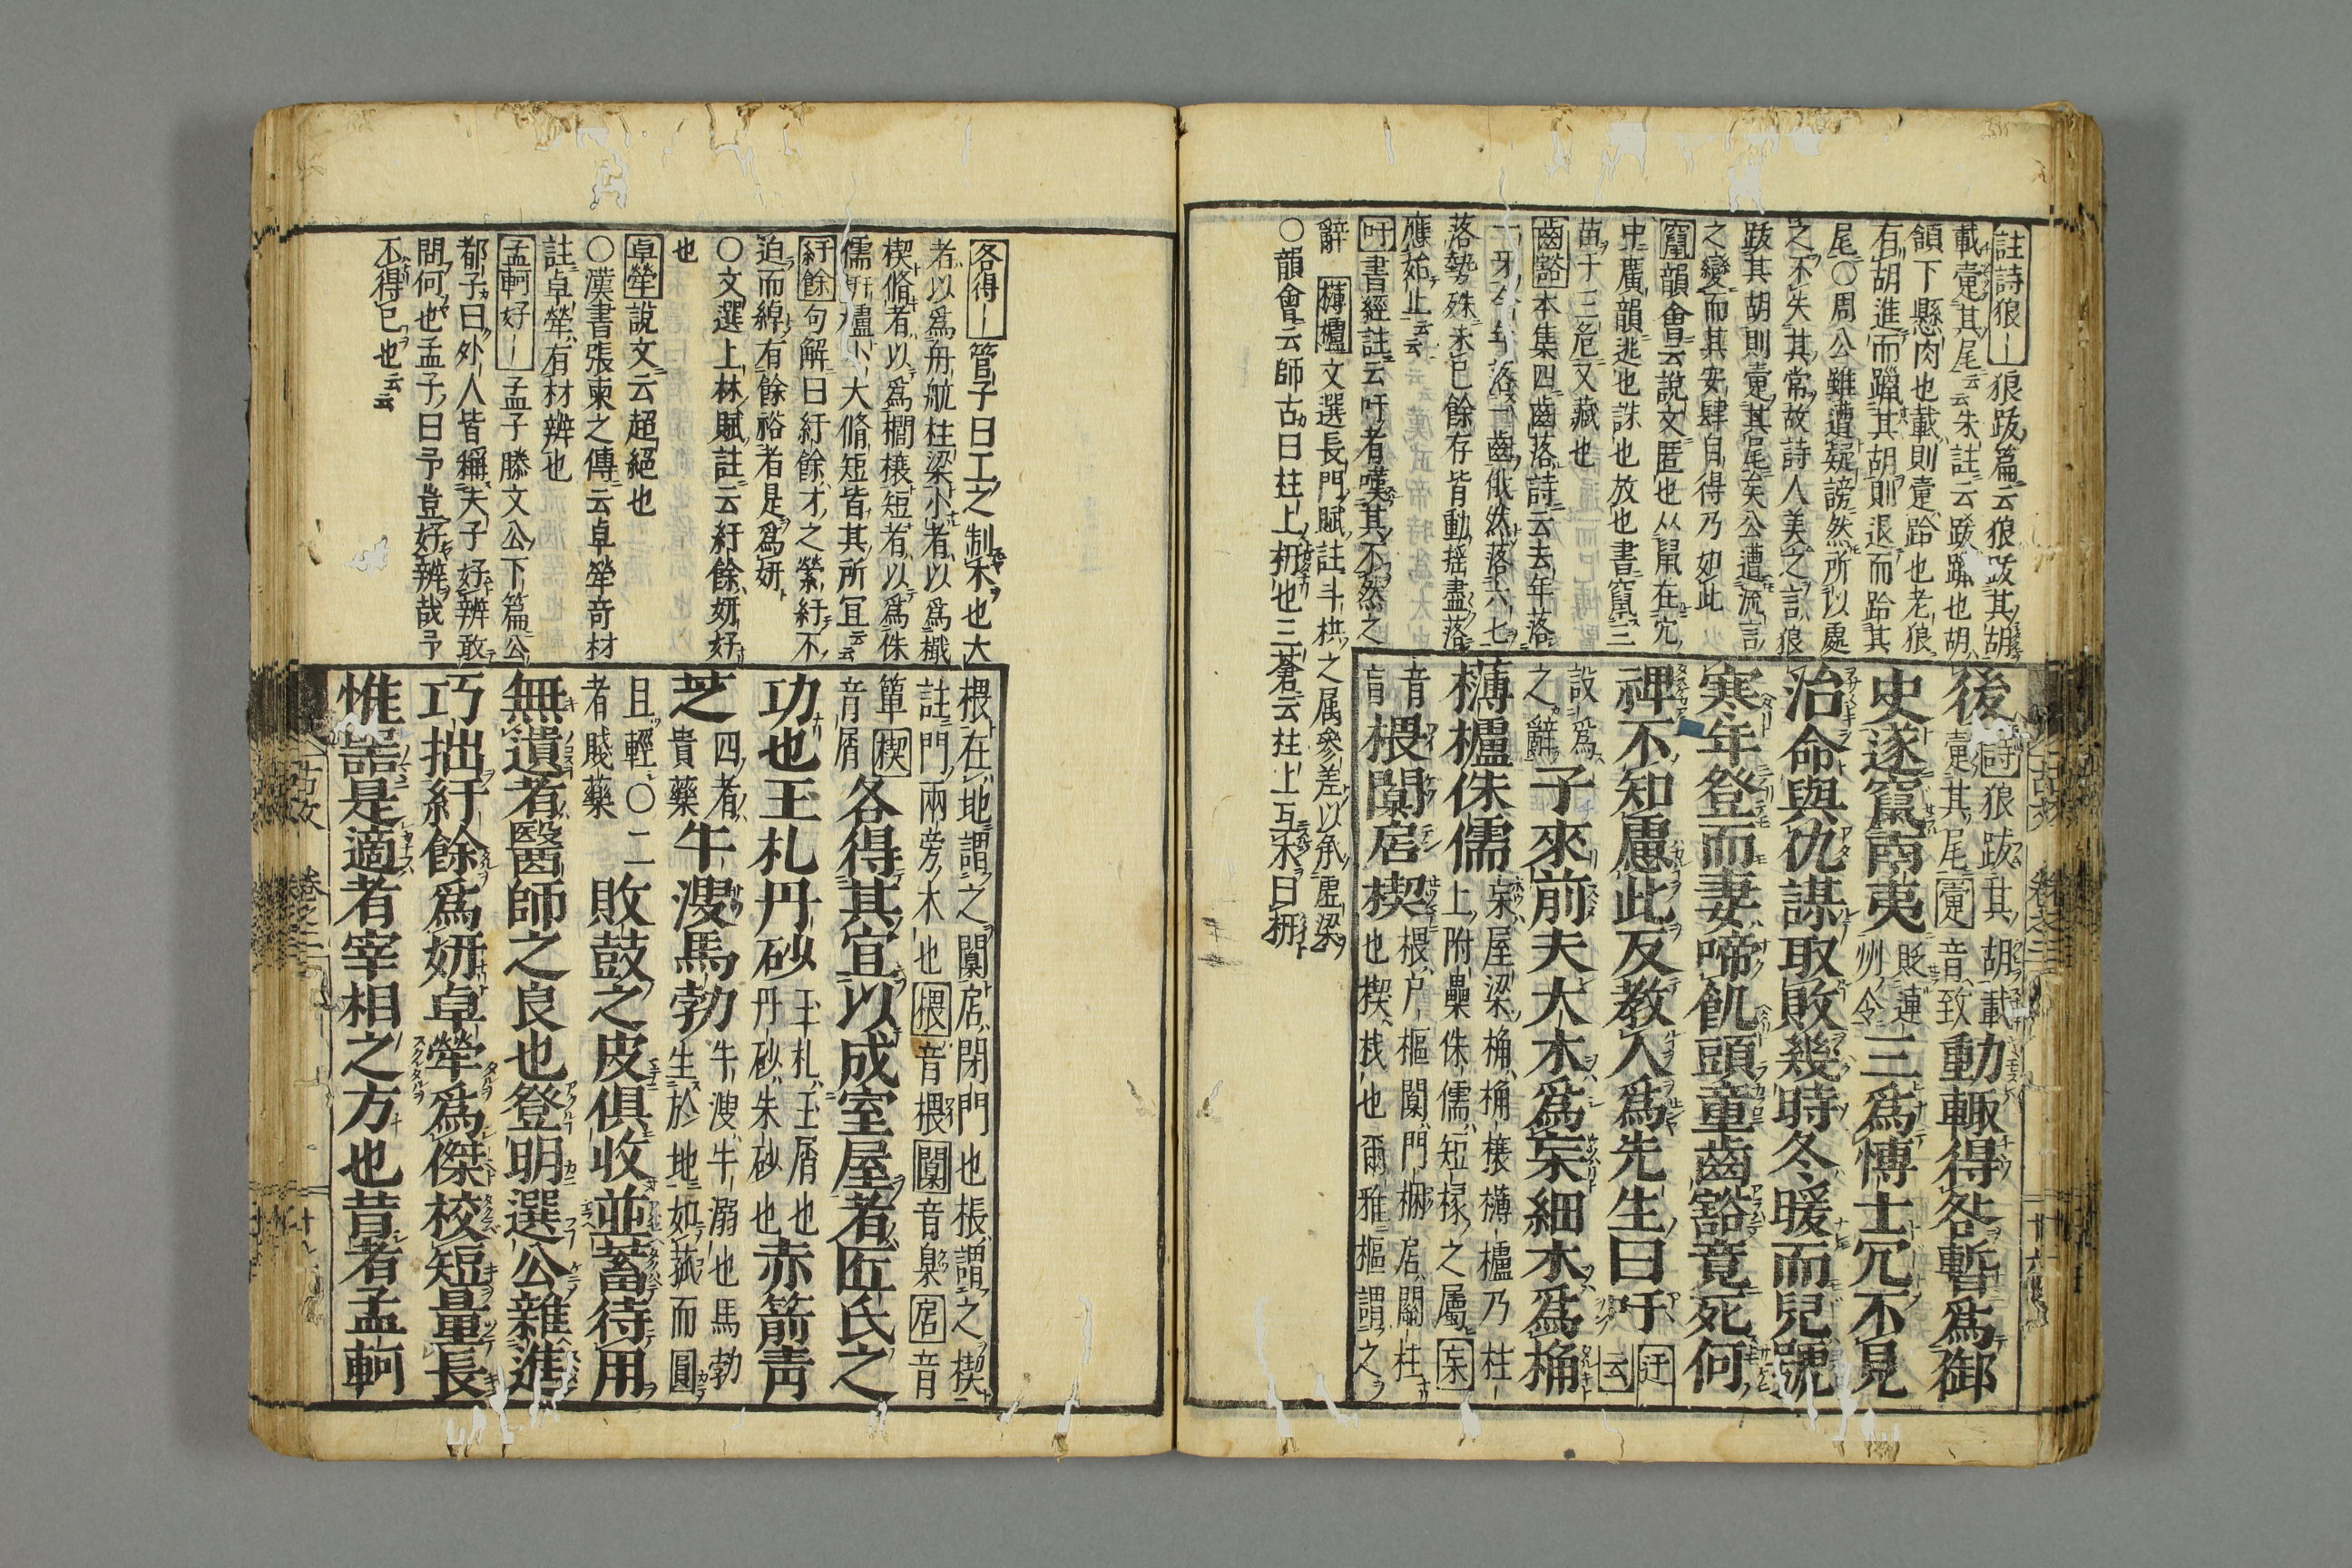 註詩狼〡狼跋篇云狼跋其胡
載疐其尾云云朱註云跋躐也胡
頷下懸肉也載則疐跲也老狼
有胡進而躐其胡則退而跲其
尾〇周公雖遭疑謗然所以處
之不失其常故詩人美之言狼
跋其胡則疐其尾矣公遭流言
之變而其安肆自得乃如此
竄韻會云說文匿也从鼠在穴
中廣韻逃也誅也放也書竄三
苗于三危又藏也
齒豁本集四齒落詩云去年落
一牙今年落一齒俄然落六七
落勢殊未已餘存皆動搖盡落
應始止云云
吁書經註云吁者嘆其不然之
辭 欂櫨文選長門賦註斗栱之属參差以承虛梁
〇韻會云師古曰柱上枅也三蒼云柱上互木曰枅
後詩狼跋其胡載疐其尾疐音致動輙得咎暫爲御
史遂竄南夷貶連州令三爲博士冗不見
治命與仇謀取敗幾時冬暖而兒號
寒年登而妻啼飢頭童齒豁竟死何
裨不知慮此反教人爲先生曰吁迂云
設爲之辭子來前夫大木爲杗細木爲桷
欂櫨侏儒杗屋梁桷桷榱欂櫨乃柱上附壘侏儒短椽之屬杗
音盲椳闑扂楔椳户樞闑門梱扂關柱也楔栈也爾雅樞謂之
各得〡管子曰工之制木也大
者以爲舟航柱梁小者以爲檝
楔脩者以爲櫩榱短者以爲侏
儒枅櫨小大脩短皆其所冝云云
紆餘句解曰紆餘才之縈紆不
迫而綽有餘裕者是爲妍
〇文選上林賦註云紆餘妍好
也
卓犖說文云超絕也
〇漢書張柬之傳云卓犖奇材
註卓犖有材辨也
孟軻好〡孟子滕文公下篇公
都子曰外人皆稱夫子好辨敢
問何也孟子曰予豈好辨哉予
不得已也云云
椳在地謂之闑扂閉門也棖謂之楔
註門兩旁木也椳音椳闑音臬扂音
簟楔音屑各得其宜以成室屋者匠氏之
功也玉札丹砂玉札玉屑也丹砂朱砂也赤箭青
芝四者貴藥牛溲馬勃牛溲牛溺也馬勃生於地如菰而圓
且輕〇二者賤藥敗鼓之皮俱收並蓄待用
無遺者醫師之良也登明選公雜進
巧拙紆餘爲妍卓犖爲傑校短量長
惟器是適者宰相之方也昔者孟軻